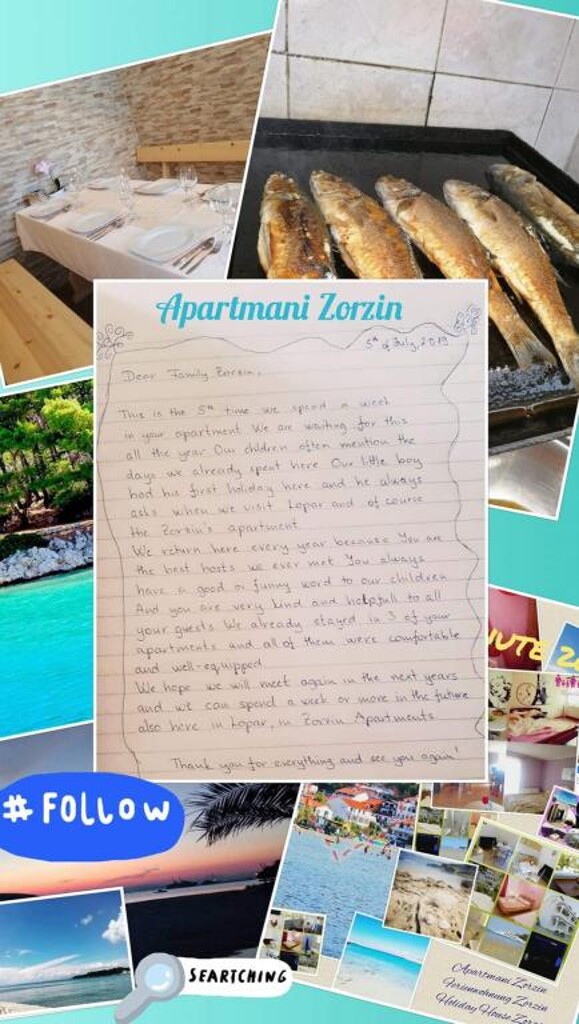 Apartmani Zorzin
5th of July, 2019
Dear Family Zorzin,
This is the 5th time we spend a week
in your apartment We are waiting for this
all the year Our children often mention the
days we already spent here Our little boy
had his first holiday here and he always
asks when we visit Lopar and of course
the Zorzin's apartment
We return here every year because You are
the best hosts we ever met You always
have a good or funny word to our children
And you are very kind and helpfull to all
your guests We already stayed in 3 of your
apartments and all of them were comfortable
and well-equipped
We hope we will meet again in the next years
and we can spend a week or more in the future
also here in Lopar, in Zorzin Apartments
Thank you for everything and see you again!
# FOLLOW
SEARTCHING
Apartmani Zorzin
Ferienwohnung Zorzin
Holiday House Zorzin